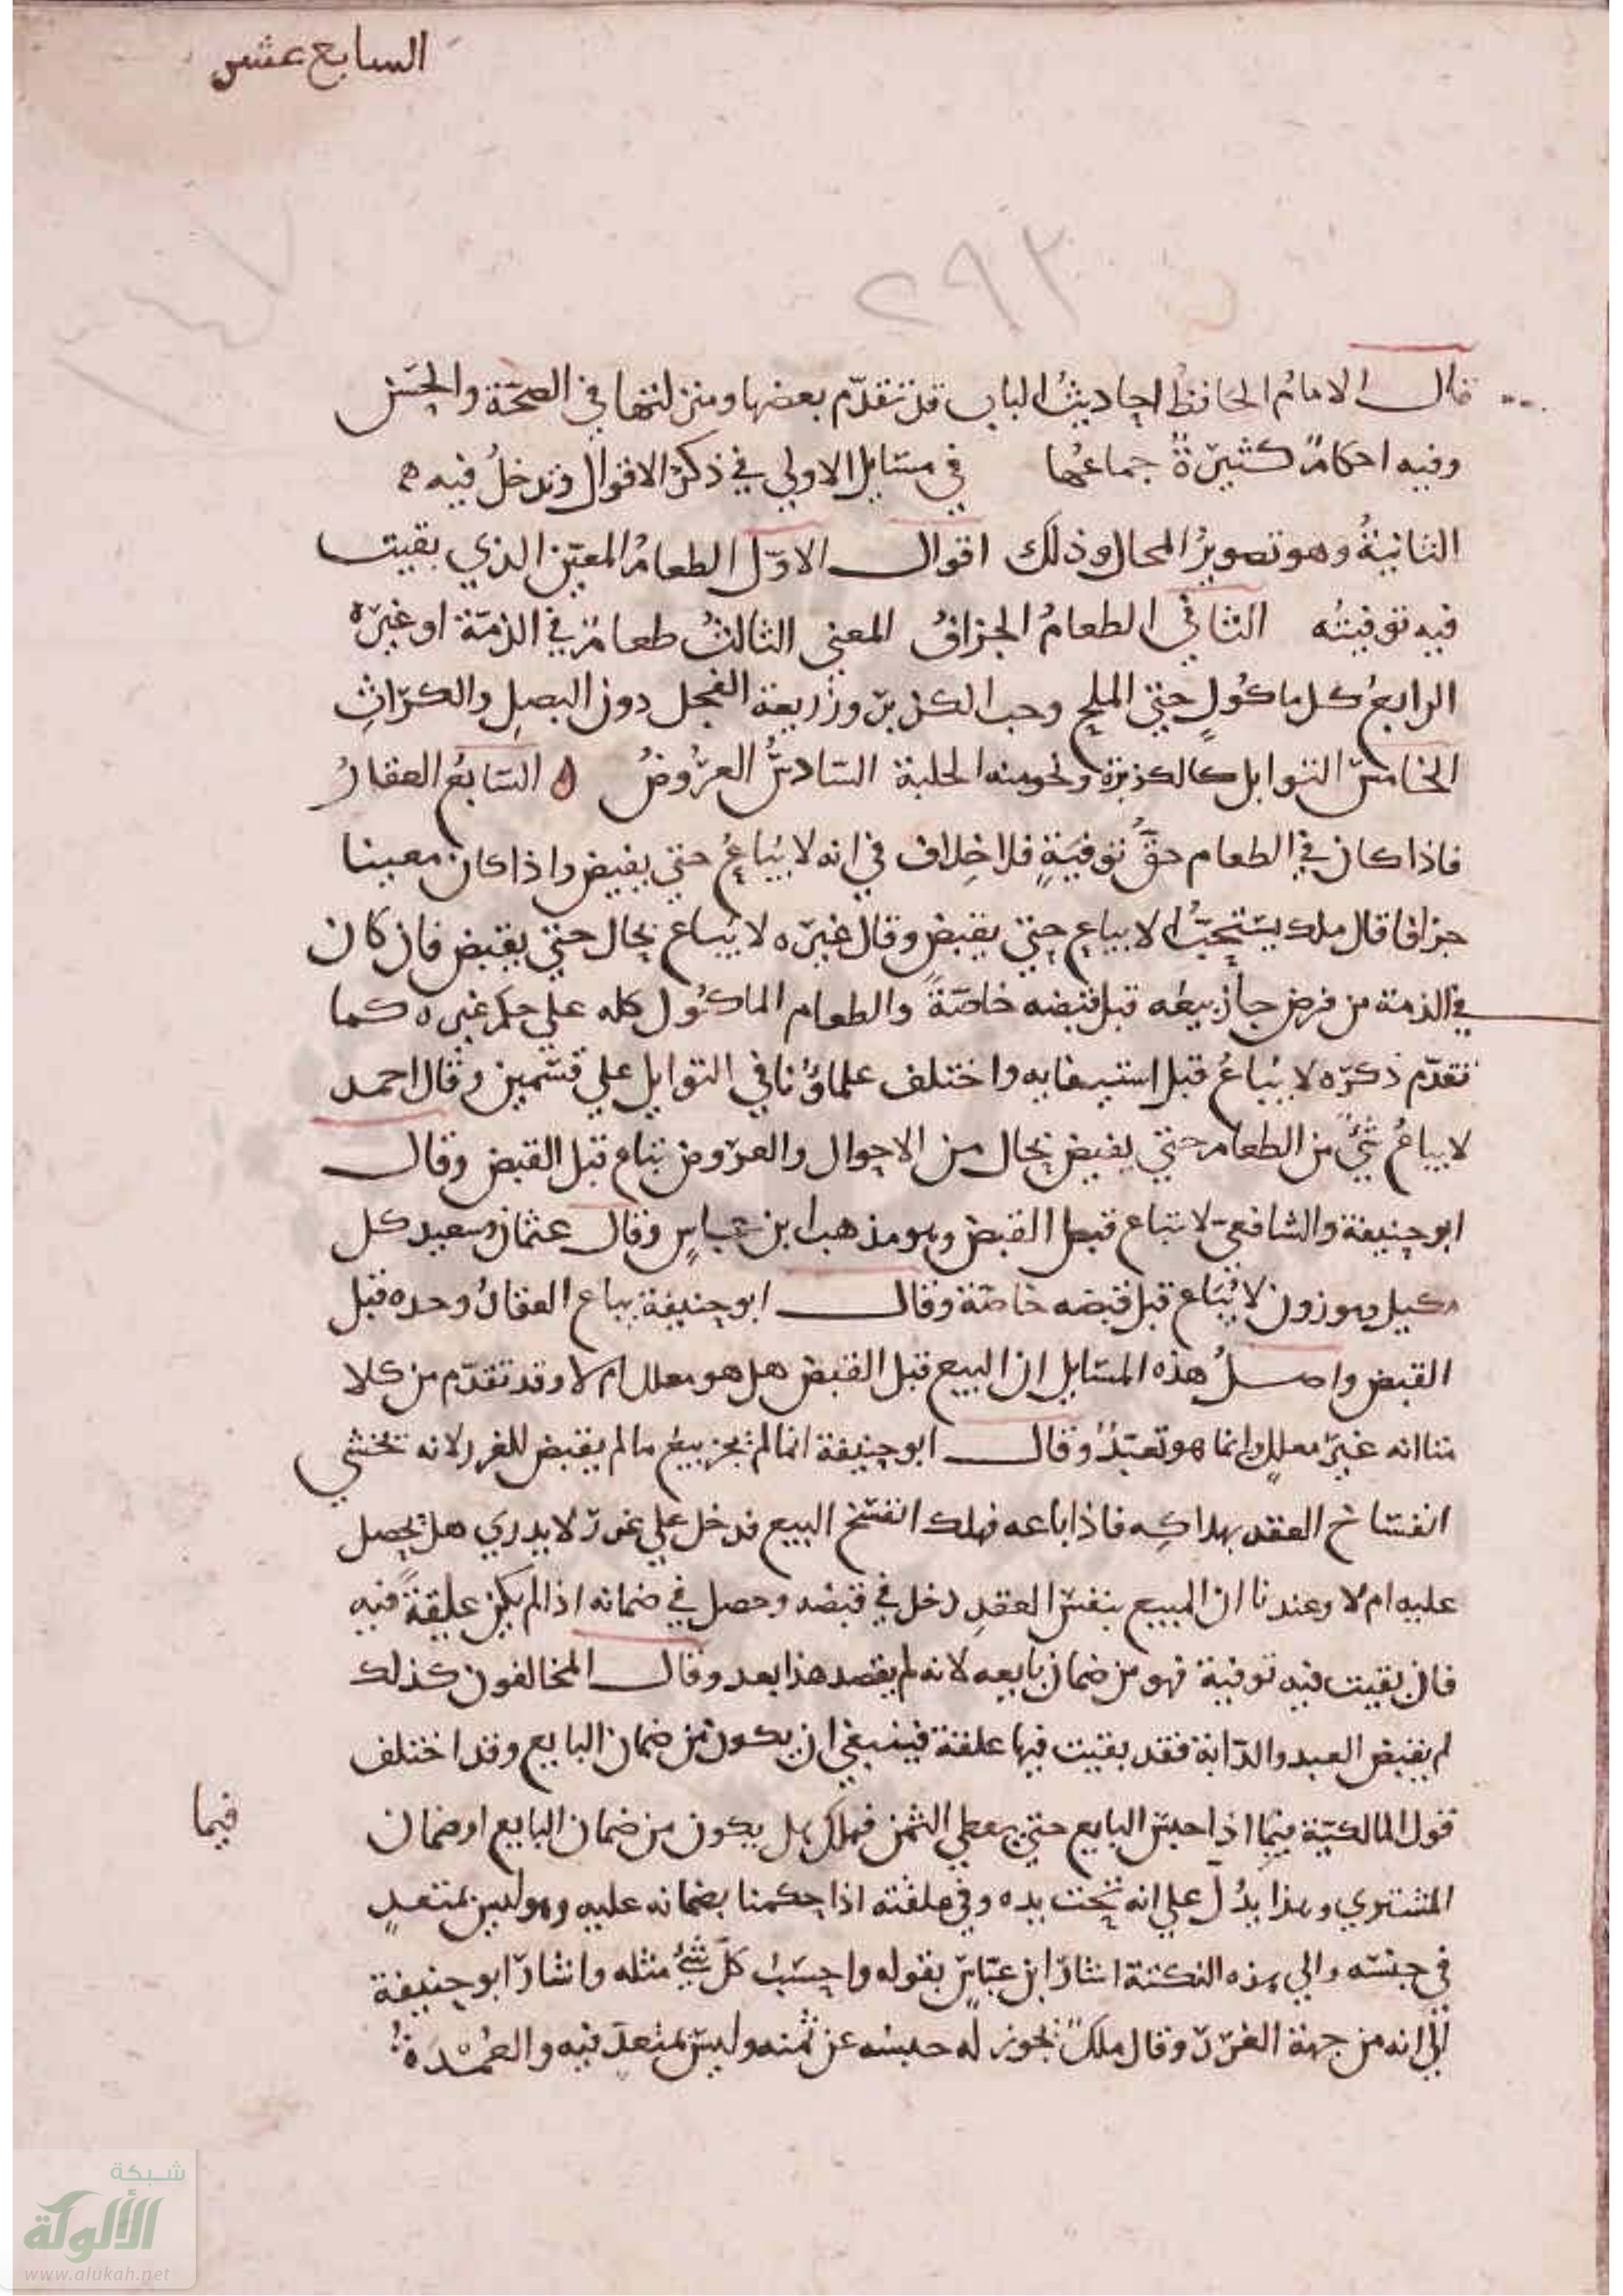 السابع عشر
٢٩٣
قال الامام الحافظ احاديث الباب قد تقدّم بعضها ومنزلتها في الصحّة والحسن
وفيه احكام كثيرة جماعها في مسايل الاولي في ذكر الاقوال وتدخل فيه
الثانية وهو تصوير المحال وذلك اقوال الاوّل الطعام المعيّن الذي بقيت
فيه توفيته الثاني الطعام الجزاف المعني الثالث طعام في الذمّة او غيره
الرابع كل ماكول حتي الملح وحب الكزبر وزريعة الفجل دون البصل والكرّاث
الخامس التوابل كالكزبرة ونحو منه الحلبة السادس العروض ه السابع العقار
فاذا كان في الطعام حقّ توفية فلا خلاف في انه لا يباع حتي يقبض واذا كان معينا
جزافا قال ملك يستحبّ الا يباع حتي يقبض وقال غيره لا يباع بحال حتي يقبض فان كان
في الذمة من قرض جاز بيعه قبل قبضه خاصّة والطعام الماكول كله علي حكم غيره كما
تقدّم ذكره لا يباع قبل استيفايه واختلف علماؤنا في التوابل علي قسمين وقال احمد
لا يباع شيء من الطعام حتي يقبض بحال من الاحوال والعروض تباع قبل القبض وقال
ابو حنيفة والشافعي لا تباع قبل القبض وهو مذهب ابن عباس وقال عثمان وسعيد كل
مكيل وموزون لا يباع قبل قبضه خاصّة وقال ابو حنيفة يباع العقار وحده قبل
القبض واصل هذه المسايل ان البيع قبل القبض هل هو معلل ام لا وقد تقدّم من كلا
منا انه غير معلل وانما هو تعبّد وقال ابو حنيفة انما لم يجز بيع ما لم يقبض للغرر لانه يخشي
انفساخ العقد بهلاكه فاذا باعه فهلك انفسخ البيع فدخل علي غرر لا يدري هل يحصل
عليه ام لا وعندنا ان المبيع بنفس العقد دخل في قبضه وحصل في ضمانه اذا لم يكن علقة فيه
فان بقيت فيه توفية فهو من ضمان بايعه لانه لم يقصد هذا بعد وقال المخالفون كذلك
لم يقبض العبد والدّابة فقد بقيت فيها علقة فينبغي ان يكون من ضمان البايع وقد اختلف
قول المالكيّة فيما اذا حبس البايع حتي يعطي الثمن فهلك هل يكون من ضمان البايع او ضمان
فيما
المشتري وهذا يدلّ علي انه تحت يده وفي علقته اذا حكمنا بضمانه عليه وهو ليس بمتعد
في حبسه والي هذه النكتة اشار ابن عبّاس بقوله واحسب كلّ شيء مثله واشار ابو حنيفة
الي انه من جهة الغرر وقال ملك يجوز له حبسه عن ثمنه وليس بمتعد فيه والعمدة
شبكة
الألوكة
www.alukah.net